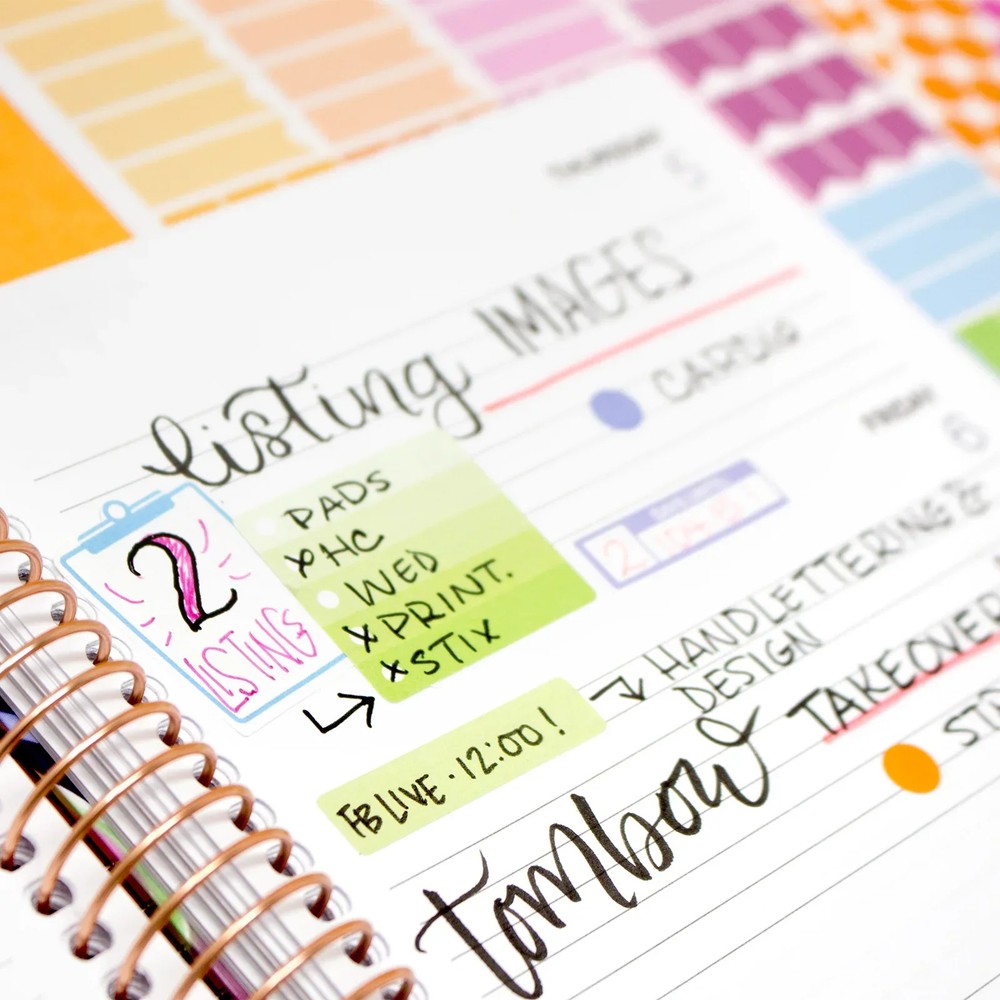 THURSDAY
5
listing IMAGES
CARDIO
2
LISTINGS
PADS
x HC
WED
x PRINT.
x STIX
FRIDAY
6
2
FB LIVE · 12:00!
HANDLETTERING &
DESIGN
tombow TAKEOVER